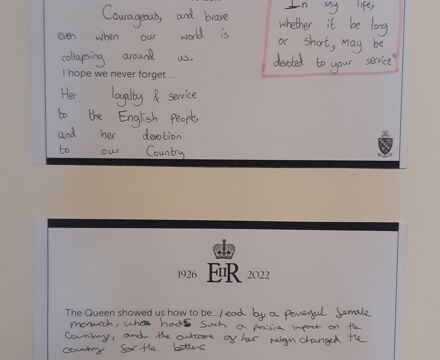 Courageous, and brave
even when our world is
collapsing around us.
I hope we never forget...
Her loyalty & service
to the English people
and her devotion
to our Country
In my life,
whether it be long
or short, may be
devoted to your service"
1926 EIIR 2022
The Queen showed us how to be... lead by a powerful female
monarch, who had such a positive impact on the
Country, and the outcome of her reign changed the
country for the better.